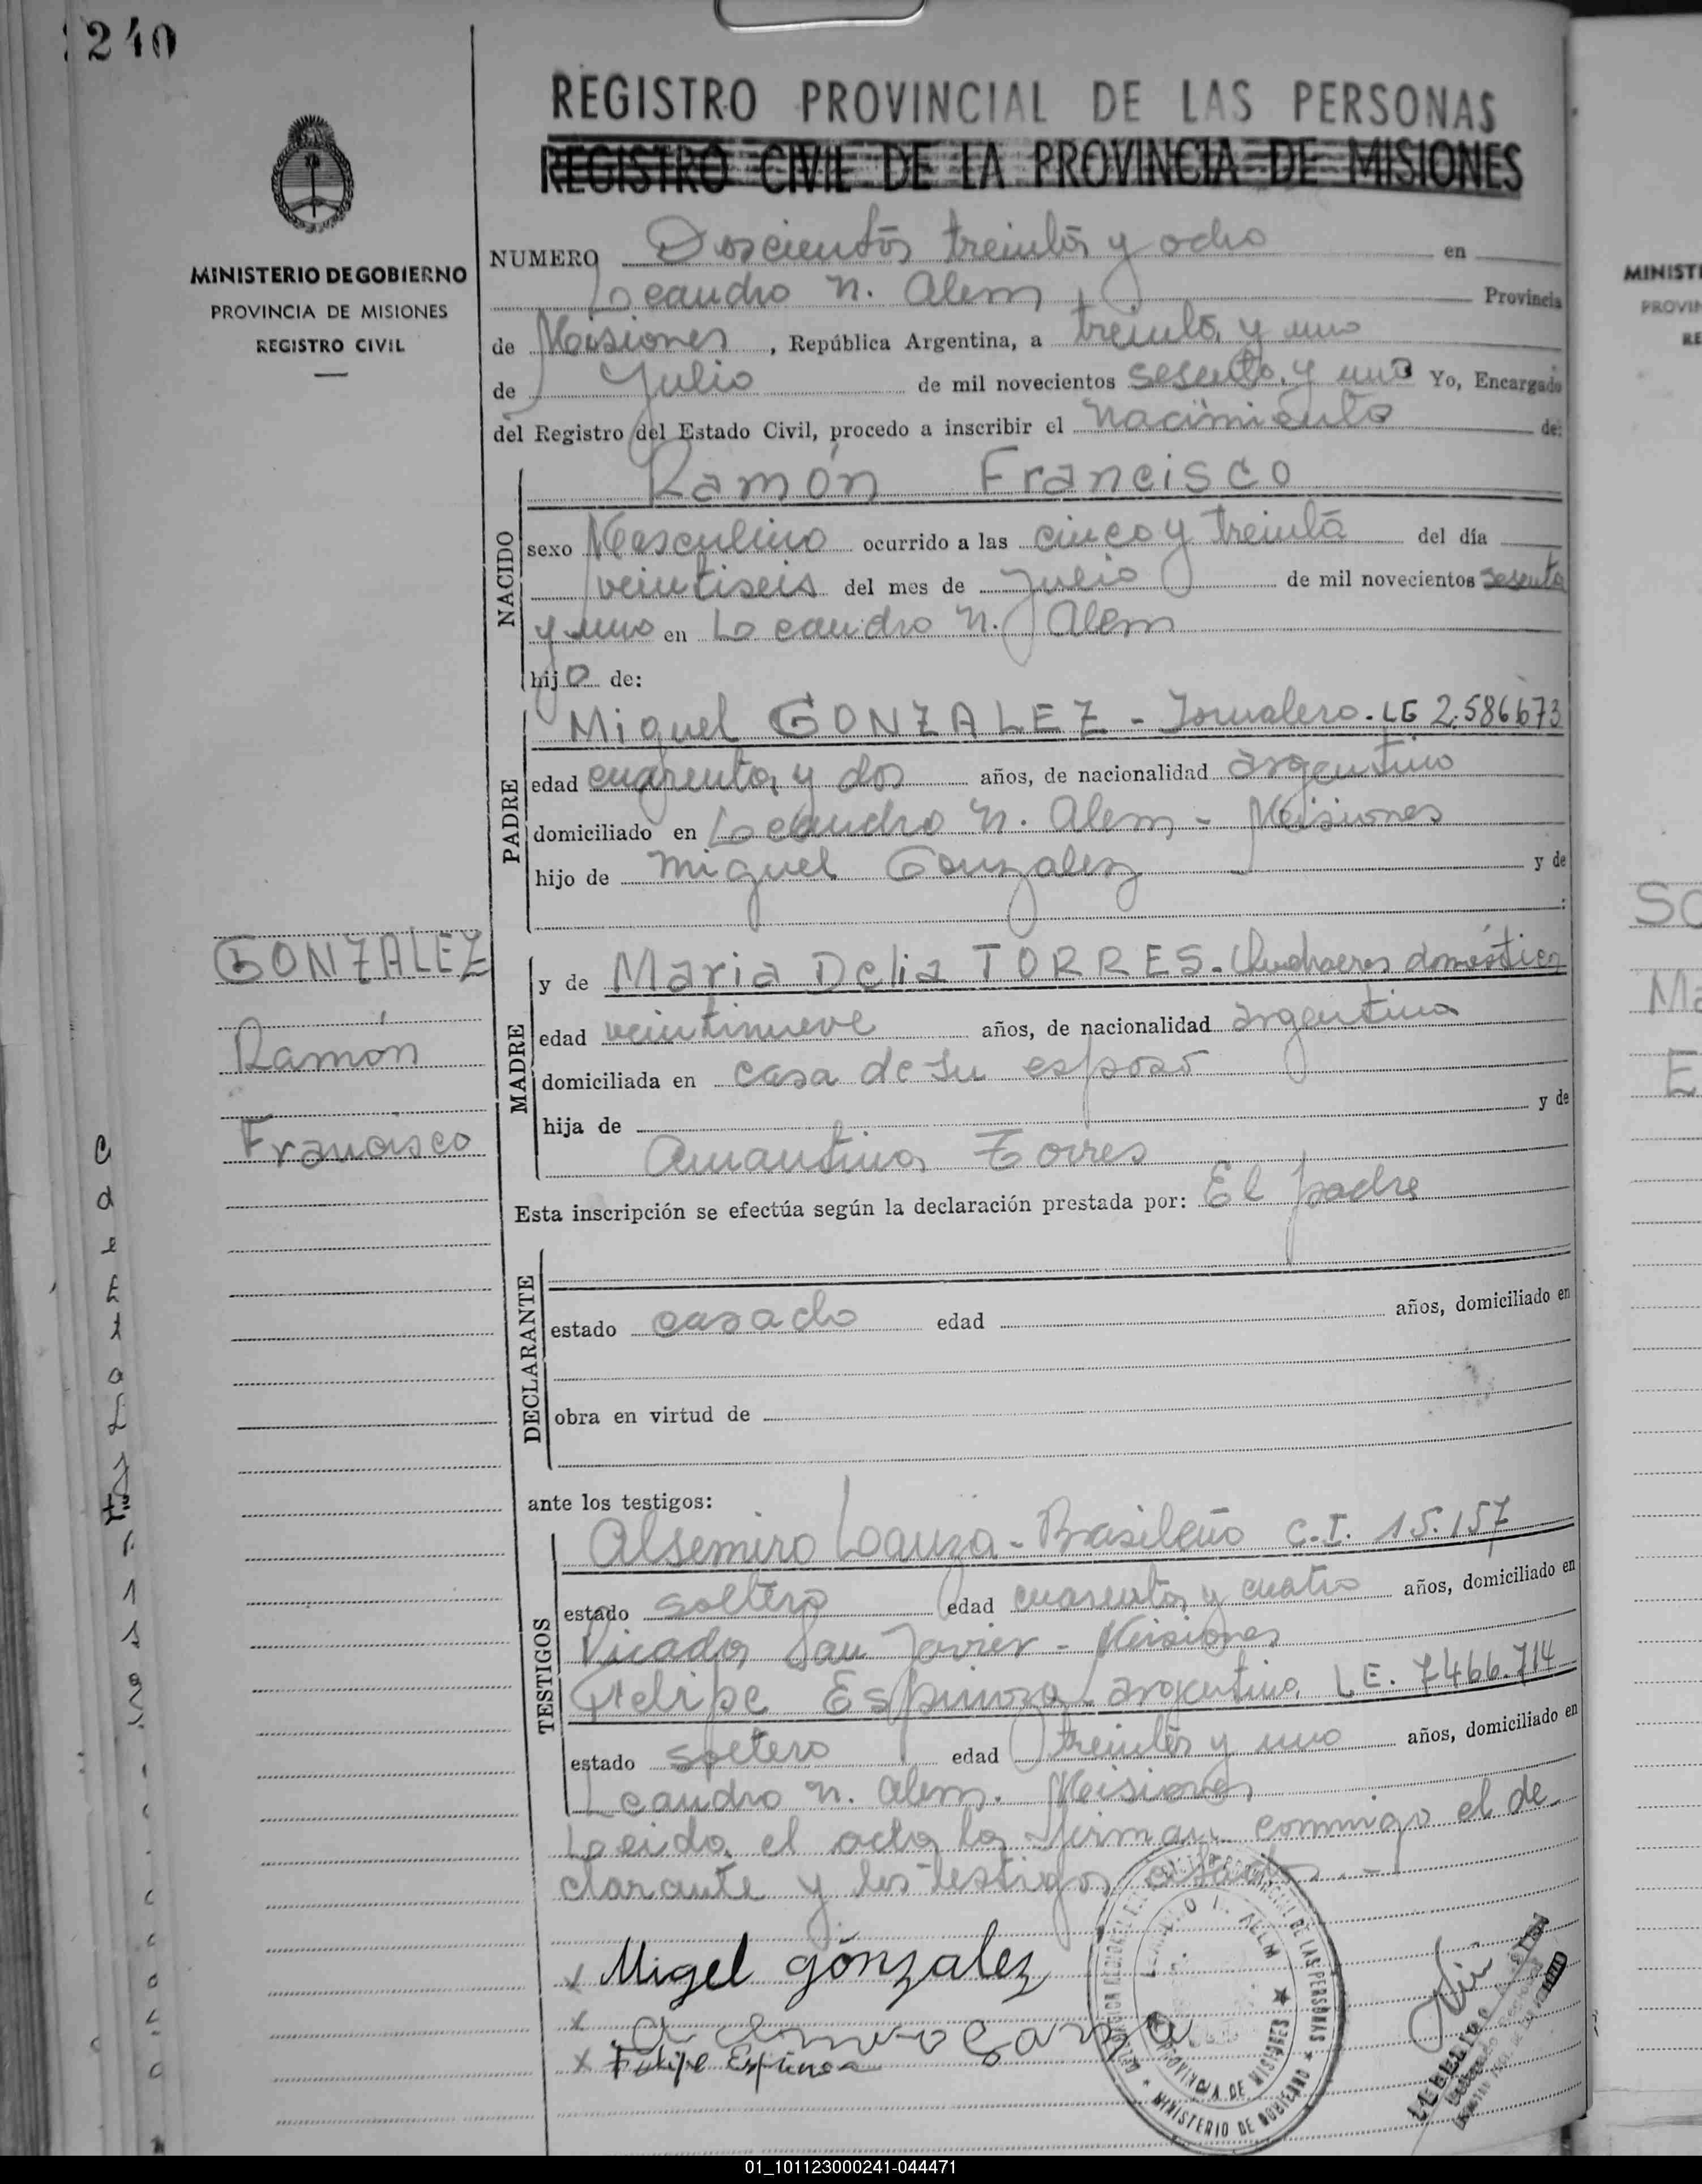 240
REGISTRO PROVINCIAL DE LAS PERSONAS
REGISTRO CIVIL DE LA PROVINCIA DE MISIONES
MINISTERIO DE GOBIERNO
PROVINCIA DE MISIONES
REGISTRO CIVIL
NUMERO Doscientos treinta y ocho en
Leandro N. Alem Provincia
de Misiones, República Argentina, a treinta y uno
de Julio de mil novecientos sesenta y uno Yo, Encargado
del Registro del Estado Civil, procedo a inscribir el nacimiento de:
NACIDO
Ramón Francisco
sexo Masculino ocurrido a las cinco y treinta del día
veintiseis del mes de Julio de mil novecientos sesenta
y uno en Leandro N. Alem
hijo de:
PADRE
Miguel GONZALEZ - Jornalero. LE 2.586673
edad cuarenta y dos años, de nacionalidad argentino
domiciliado en Leandro N. Alem - Misiones
hijo de Miguel Gonzalez y de
GONZALEZ
Ramón
Francisco
MADRE
y de Maria Delia TORRES - domésticos
edad veintinueve años, de nacionalidad argentina
domiciliada en casa de su esposo
hija de y de
Amantina Torres
Esta inscripción se efectúa según la declaración prestada por: El padre
DECLARANTE
estado casado edad años, domiciliado en
obra en virtud de
ante los testigos:
TESTIGOS
Alsemiro - Basileño C.I. 15.157
estado soltero edad cuarenta y cuatro años, domiciliado en
Picada San Javier - Misiones
Felipe Espinoza argentino LE. 7466.714
estado soltero edad treinta y uno años, domiciliado en
Leandro N. Alem. Misiones
Leida el acta la firman conmigo el de
clarante y los testigos citados.-
x Migel gónzalez
x
x Felipe Espinoza
REGISTRO PROVINCIAL DE LAS PERSONAS
LEANDRO N. ALEM
PROVINCIA DE MISIONES
MINISTERIO DE GOBIERNO
MINISTE
PROVIN
RE
SO
Ma
E
01_101123000241-044471